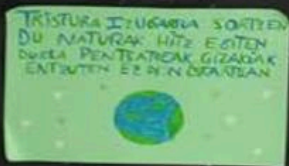 TRISTURA IZUGARRIA SORTZEN
DU NATURAK HITZ EGITEN
DUELA PENTSATZEAK GIZAKIAK
ENTZUTEN EZ DUEN BITARTEAN